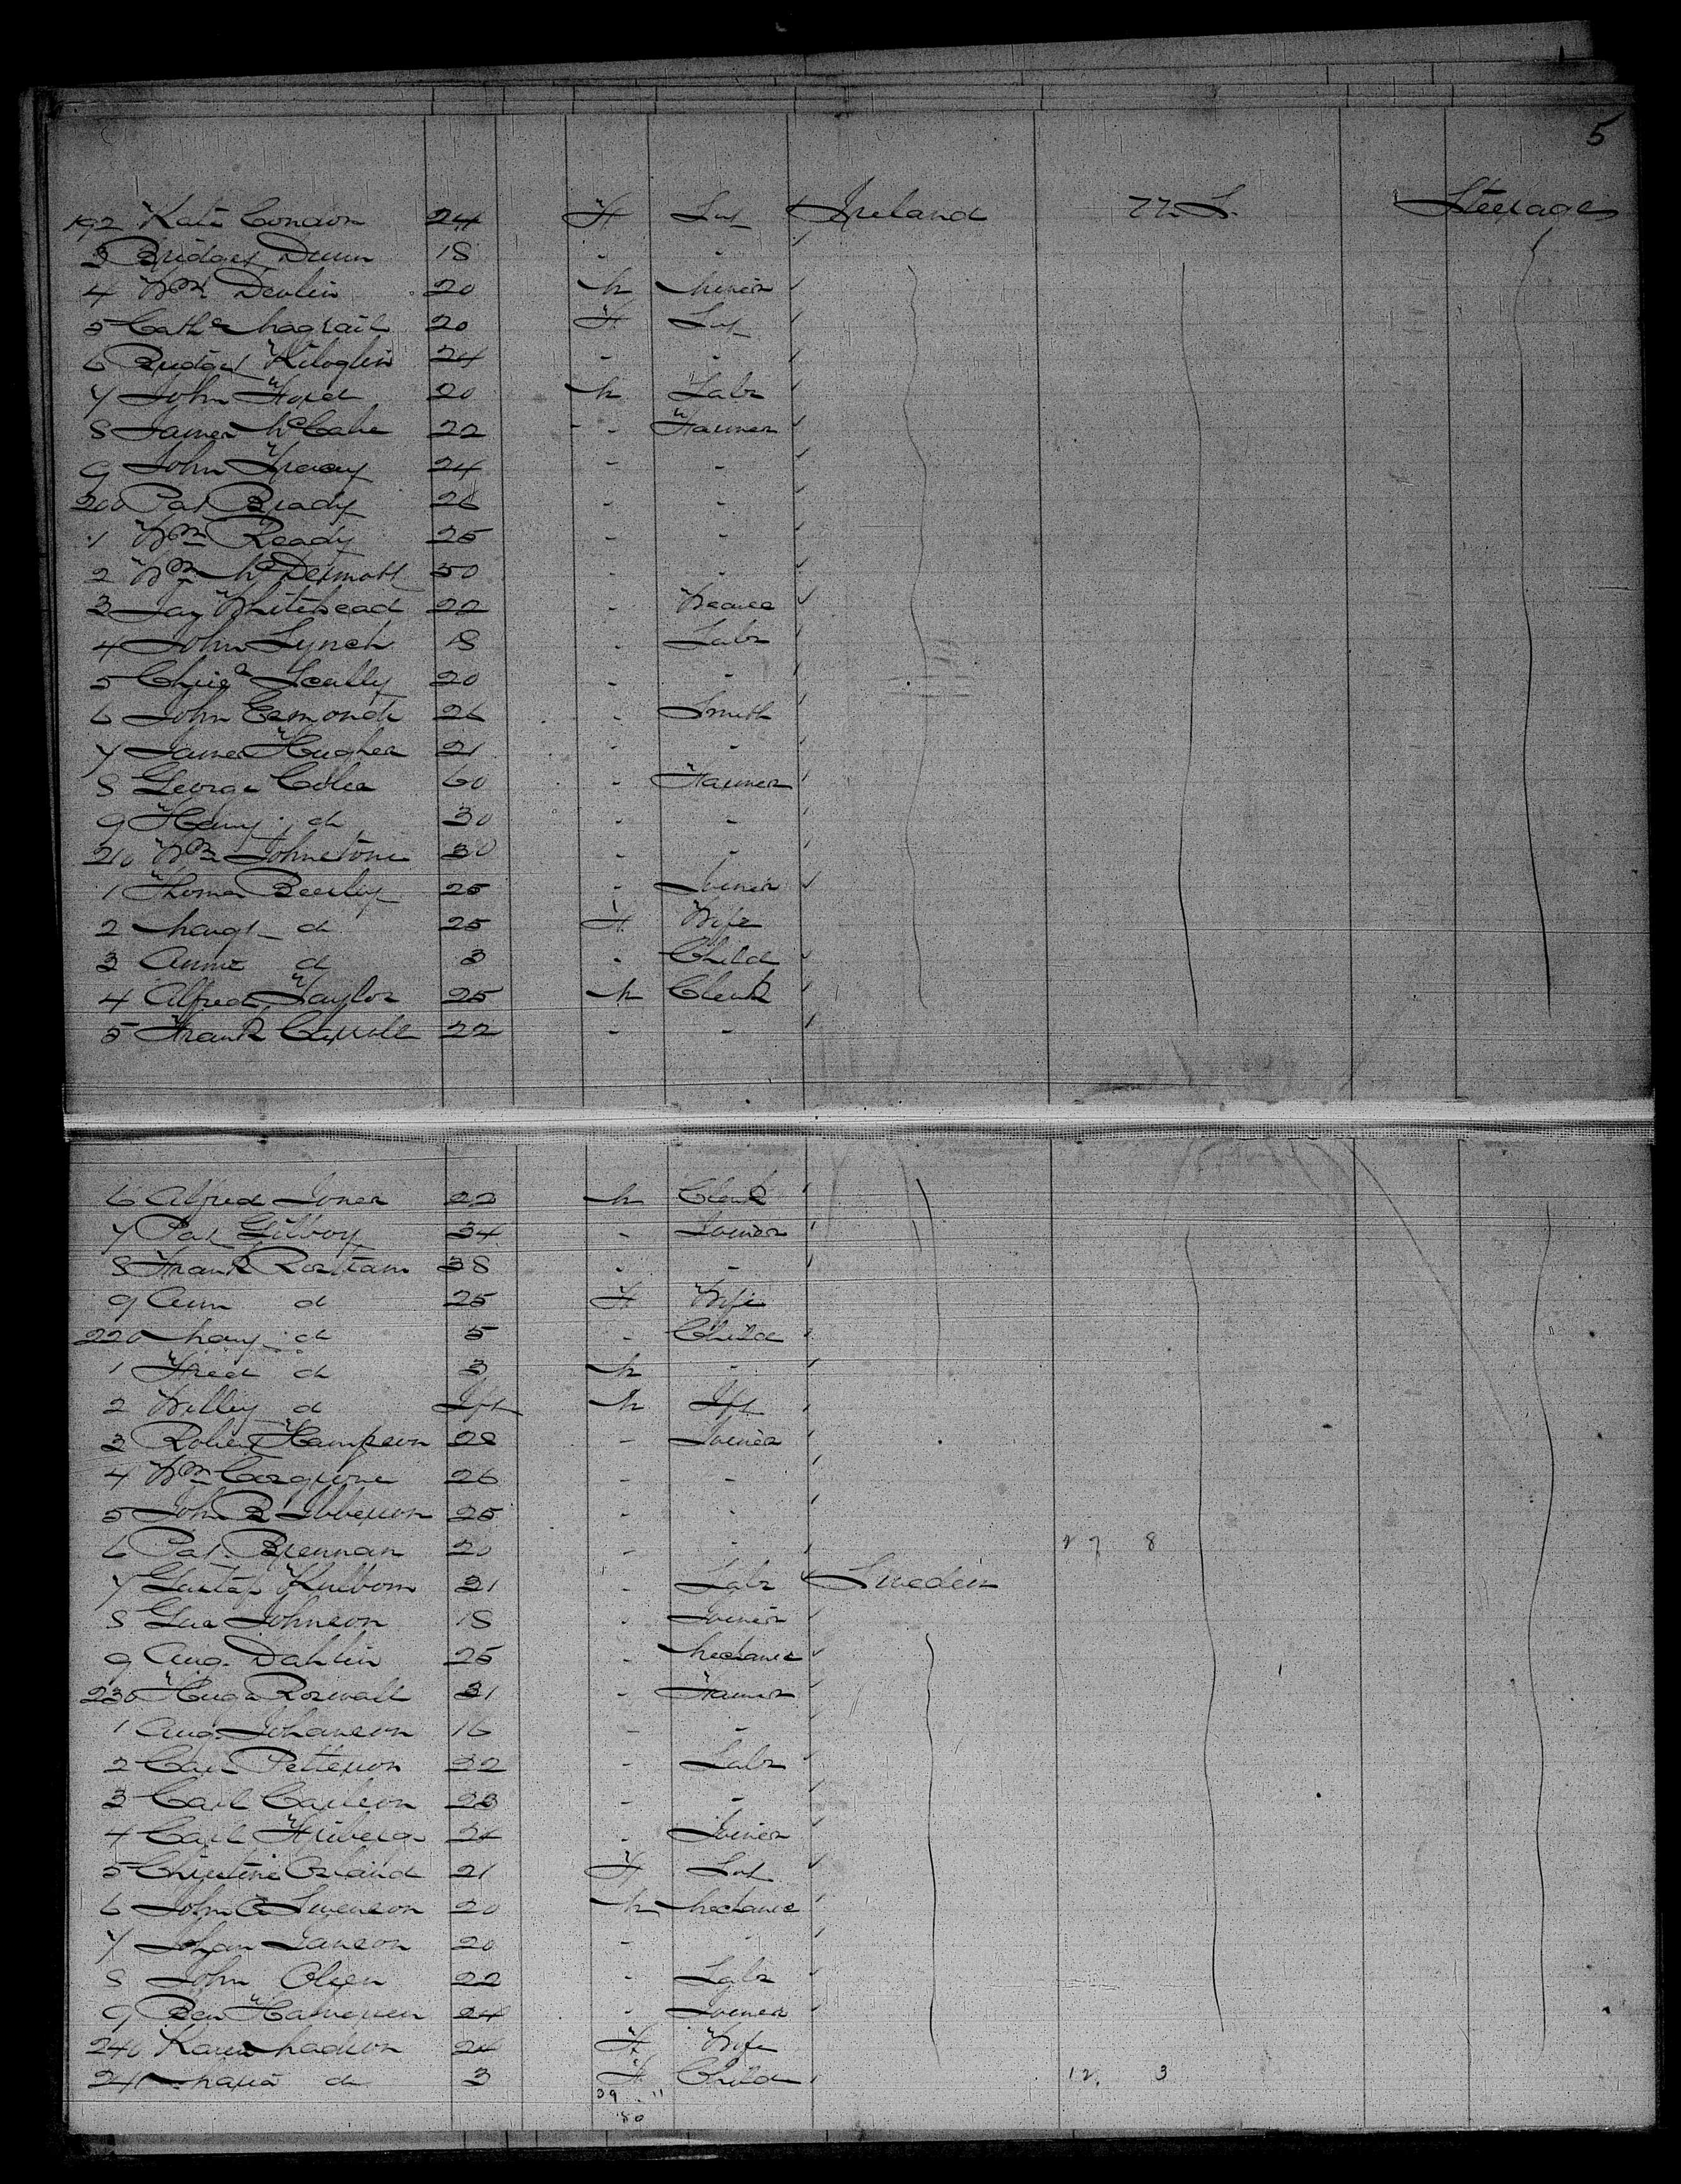 5
192 Kate Condon 24 F Spt Ireland U.S. Steerage
3 Bridget Dunn 18 - -
4 Wm Devlin 20 M Miner
5 Cathe Magrail 20 F Spt
6 Bridget Kiloglin 24 - -
7 John Ford 20 M Labr
8 James McCabe 22 - Farmer
9 John Tracey 24 - -
200 Pat Brady 26 - -
1 Wm Ready 25 - -
2 Wm McDermott 50 - -
3 Jas Whitehead 22 - Weaver
4 John Lynch 18 - Labr
5 Scally 20 - -
6 John Esmonde 26 - Smith
7 James Hughes 21 - -
8 George Coles 60 - Farmer
9 Henry do 30 - -
210 Wm Johnstone 30 - -
1 Thomas Beesley 25 - Joiner
2 Margt do 25 F Wife
3 Annie do 3 - Child
4 Alfred Taylor 25 M Clerk
5 Frank 22 - -
6 Alfred Jones 22 M Clerk
7 Pat Gilboy 34 - Joiner
8 Frank Rostam 38 - -
9 Ann do 25 F Wife
220 Mary do 5 - Child
1 Fred do 3 M -
2 Willey do Inft M Inft
3 Robert Hampson 28 - Joiner
4 Wm Cosgrove 26 - -
5 John B Ibberson 25 - -
6 Pat Brennan 20 - - 27 8
7 Gustaf Kullbom 21 - Labr Sweden
8 Gus Johnson 18 - Joiner
9 Aug. Dahlin 25 - Mechanic
230 Hugo Roswall 31 - Farmer
1 Aug. Johanson 16 - -
2 Petterson 32 - Labr
3 Carl Carlson 23 - -
4 Carl Friberg 24 - Joiner
5 Christine 21 F Spt
6 John A Swenson 20 M Mechanic
7 Johan Janson 20 - -
8 John Olsen 22 - Labr
9 Ben Halversen 24 - Joiner
240 Karen Madson 24 F Wife
241 Maria do 3 F Child 12. 3
39 "
80